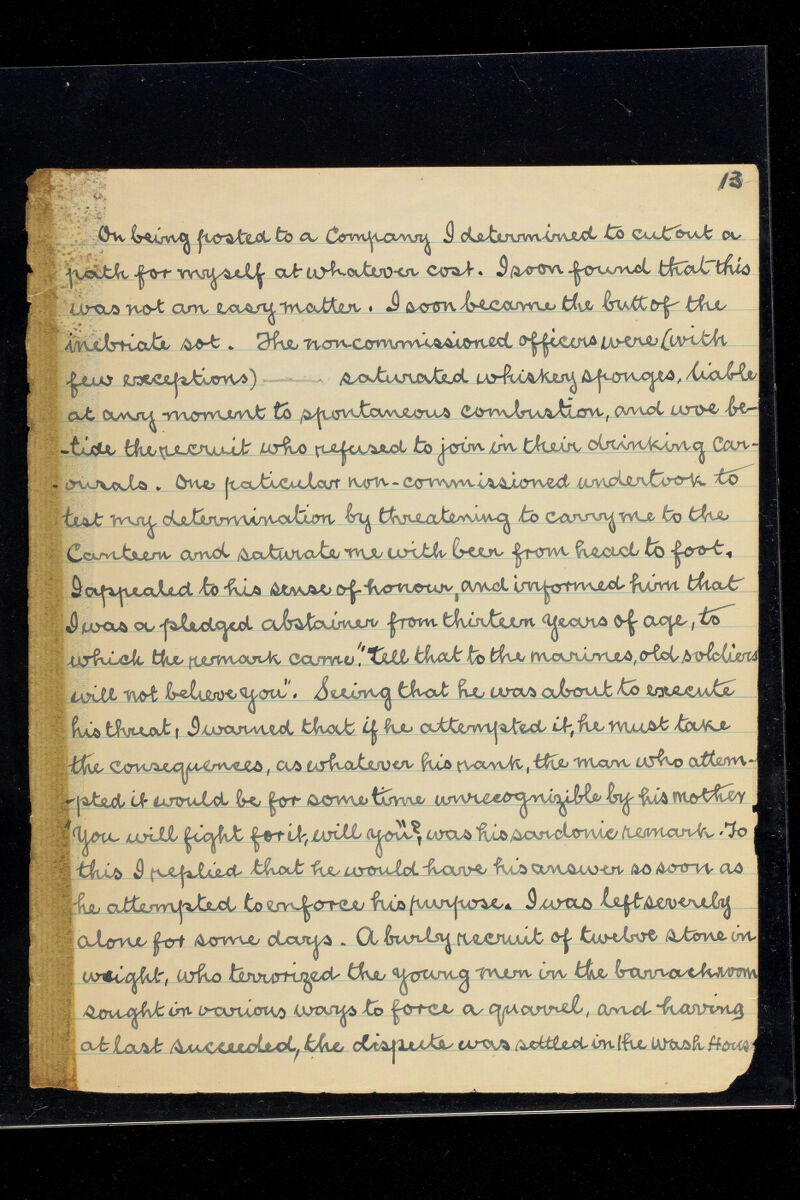 13
On being posted to a Company I determined to cut out a
path for myself at whatever cost. I soon found that this
was not an easy matter. I soon became the butt of the
inebriate sot. The noncommissioned officers were (with
few exceptions) —— saturated whiskey sponges, liable
at any moment to spontaneous combustion, and woe be-
-tide the recruit who refused to join in their drinking Car-
-ousals. One paticular non-commissioned undertook to
test my determination by threatening to carry me to the
Canteen and saturate me with beer from head to foot.
I appealed to his sense of honour, and informed him that
I was a pledged abstainer from thirteen years of age, to
which the remark came". "tell that to the marines, old soldiers
will not believe you". Seeing that he was about to execute
his threat, I warned that if he attempted it, he must take
the consequences, as whatever his rank, the man who attem-
-pted it would be for some time unrecognizible by his mother
"You will fight for it, will you"?, was his sardonic remark. To
this I replied that he would have his answer so soon as
he attempted to enforce his purpose. I was left severely
alone for some days. A burly recruit of twelve stone in
weight, who terrorized the young men in the barrackroom
sought in various ways to force a quarrel, and having
at last succeeded, the dispute was settled in the Wash Hous